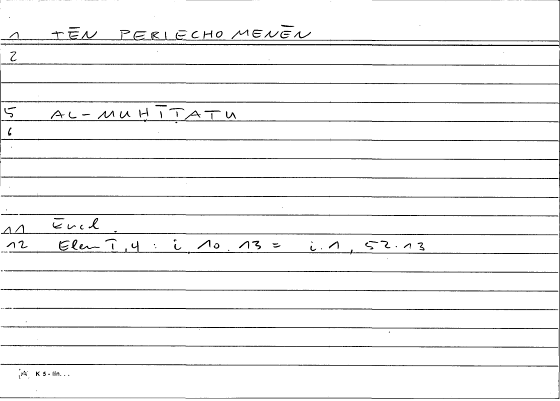 1 tĒN PERIECHOMENĒN
2
5 AL-MUḤĪṬATU
6
11 Eucl.
12 Elem I,4 : i, 10.13 = i.1, 52.13
K 5 -